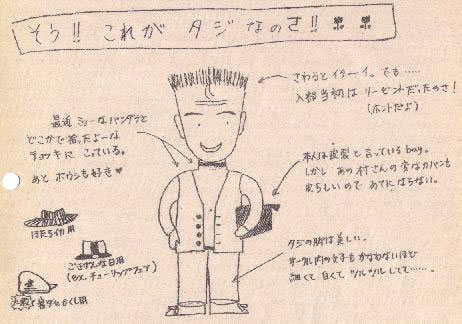 そう!! これが タジ なのさ!!
さわるとイターイ。でも……
入部当初は リーゼントだったのさ!
(ホントだよ)
最近 ミョーなバンダナと
どこかで拾ったよーな
チョッキに こっている。
あと ボウシも好き♥
本人は 言っている bag。
しかし あの村さんの変なカバンも
めずらしいので あてにならない。
ほたるイカ用
ごきげんな日用
(ex. チューリップフェア)
かくし用
タジの脚は美しい。
サークル内の女子もかなわないほど
細くて 白くて ツルツル してて……。